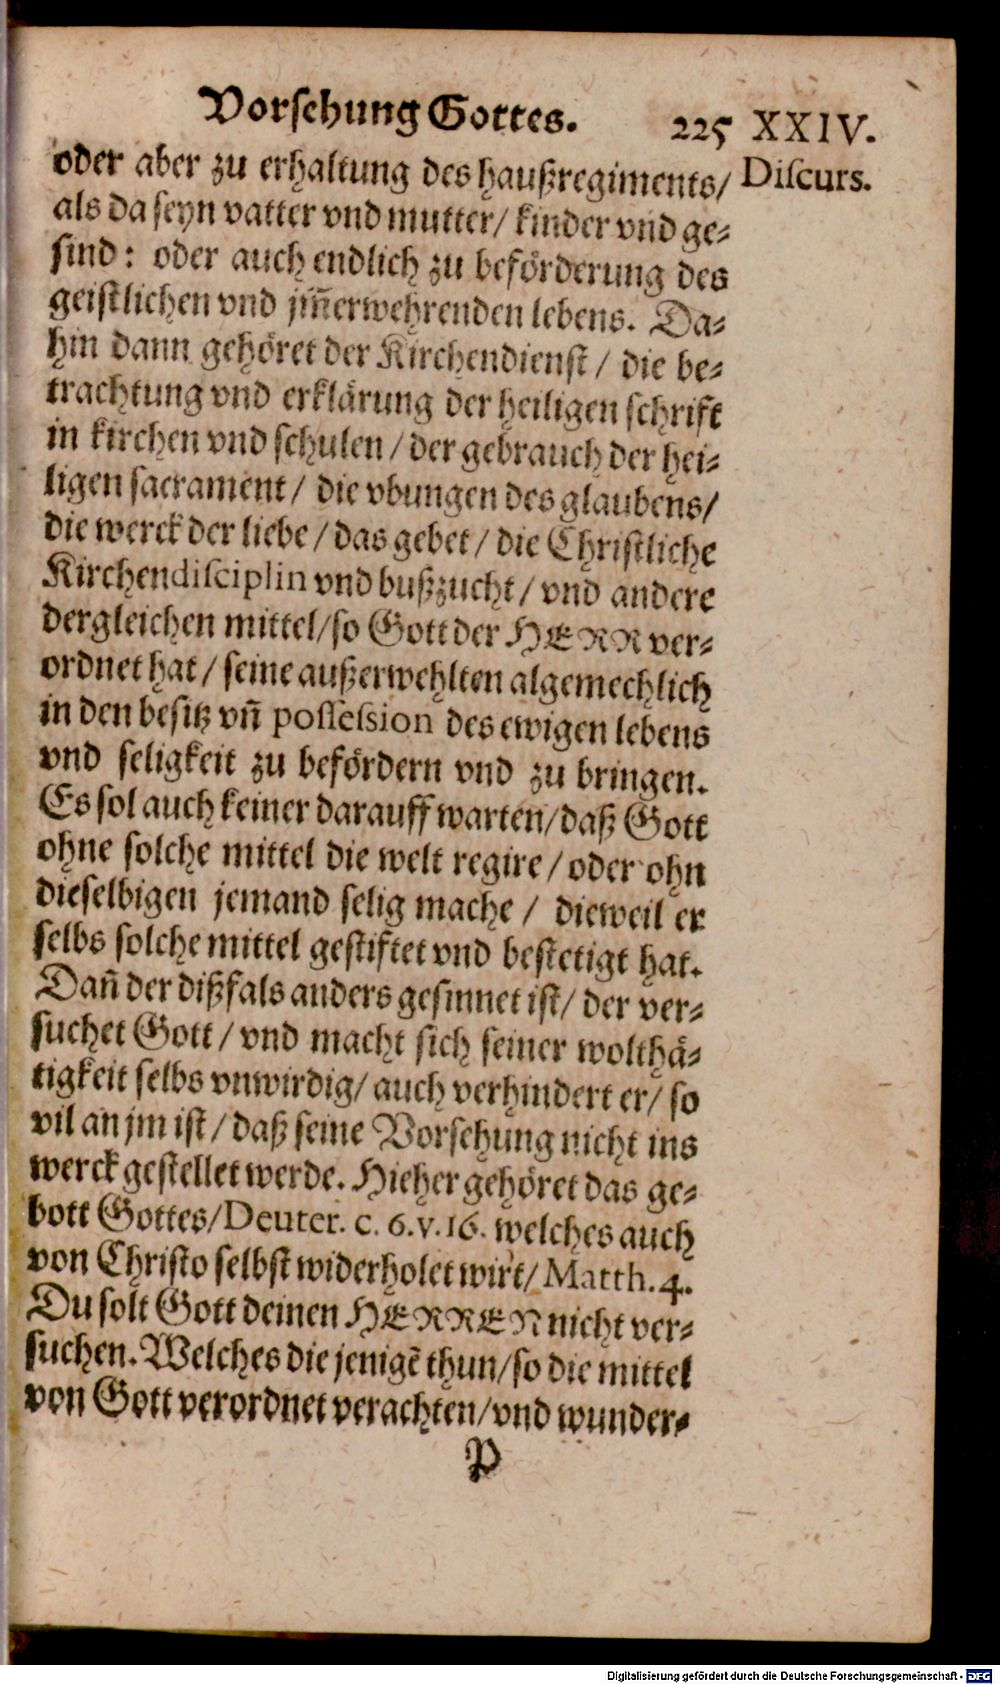 Vorsehung Gottes. 225 XXIV.
Discurs.
oder aber zu erhaltung des haußregiments/
als da seyn vatter vnd mutter/ kinder vnd ge⸗
sind: oder auch endlich zu beförderung des
geistlichen vnd jm̃erwehrenden lebens. Da⸗
hin dann gehöret der Kirchendienst / die be⸗
trachtung vnd erklärung der heiligen schrift
in kirchen vnd schulen / der gebrauch der hei⸗
ligen sacrament / die vbungen des glaubens/
die werck der liebe / das gebet / die Christliche
Kirchendisciplin vnd bußzucht / vnd andere
dergleichen mittel/so Gott der HERR ver⸗
ordnet hat / seine außerwehlten algemechlich
in den besitz vñ possession des ewigen lebens
vnd seligkeit zu befördern vnd zu bringen.
Es sol auch keiner darauff warten/daß Gott
ohne solche mittel die welt regire / oder ohn
dieselbigen jemand selig mache / dieweil er
selbs solche mittel gestiftet vnd bestetigt hat.
Dañ der dißfals anders gesinnet ist/ der ver⸗
suchet Gott / vnd macht sich seiner wolthä⸗
tigkeit selbs vnwirdig/ auch verhindert er/ so
vil an jm ist / daß seine Vorsehung nicht ins
werck gestellet werde. Hieher gehöret das ge⸗
bott Gottes/Deuter. c. 6. v. 16. welches auch
von Christo selbst widerholet wirt/ Matth. 4.
Du solt Gott deinen HERREN nicht ver⸗
suchen. Welches die jenigẽ thun/so die mittel
von Gott verordnet verachten/vnd wunder⸗
P
Digitalisierung gefördert durch die Deutsche Forschungsgemeinschaft - DFG